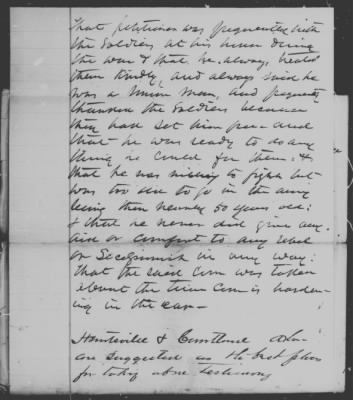 That petitioner was frequently with
the Soldiers at his house during
the war & that he always treated
them kindly, and always said he
was a Union man, and frequently
thanked the Soldiers because
they had set him free and
that he was ready to do any
thing he could for them; &
that he was willing to fight but
was too old to go in the army
being then nearly 50 years old;
& that he never did give any
aid or comfort to any Rebel
or Secessionist in any way;
that the said Corn was taken
about the time Corn is harden-
ing in the ear—
Huntsville & Ala
are suggested as the best places
for taking above testimony